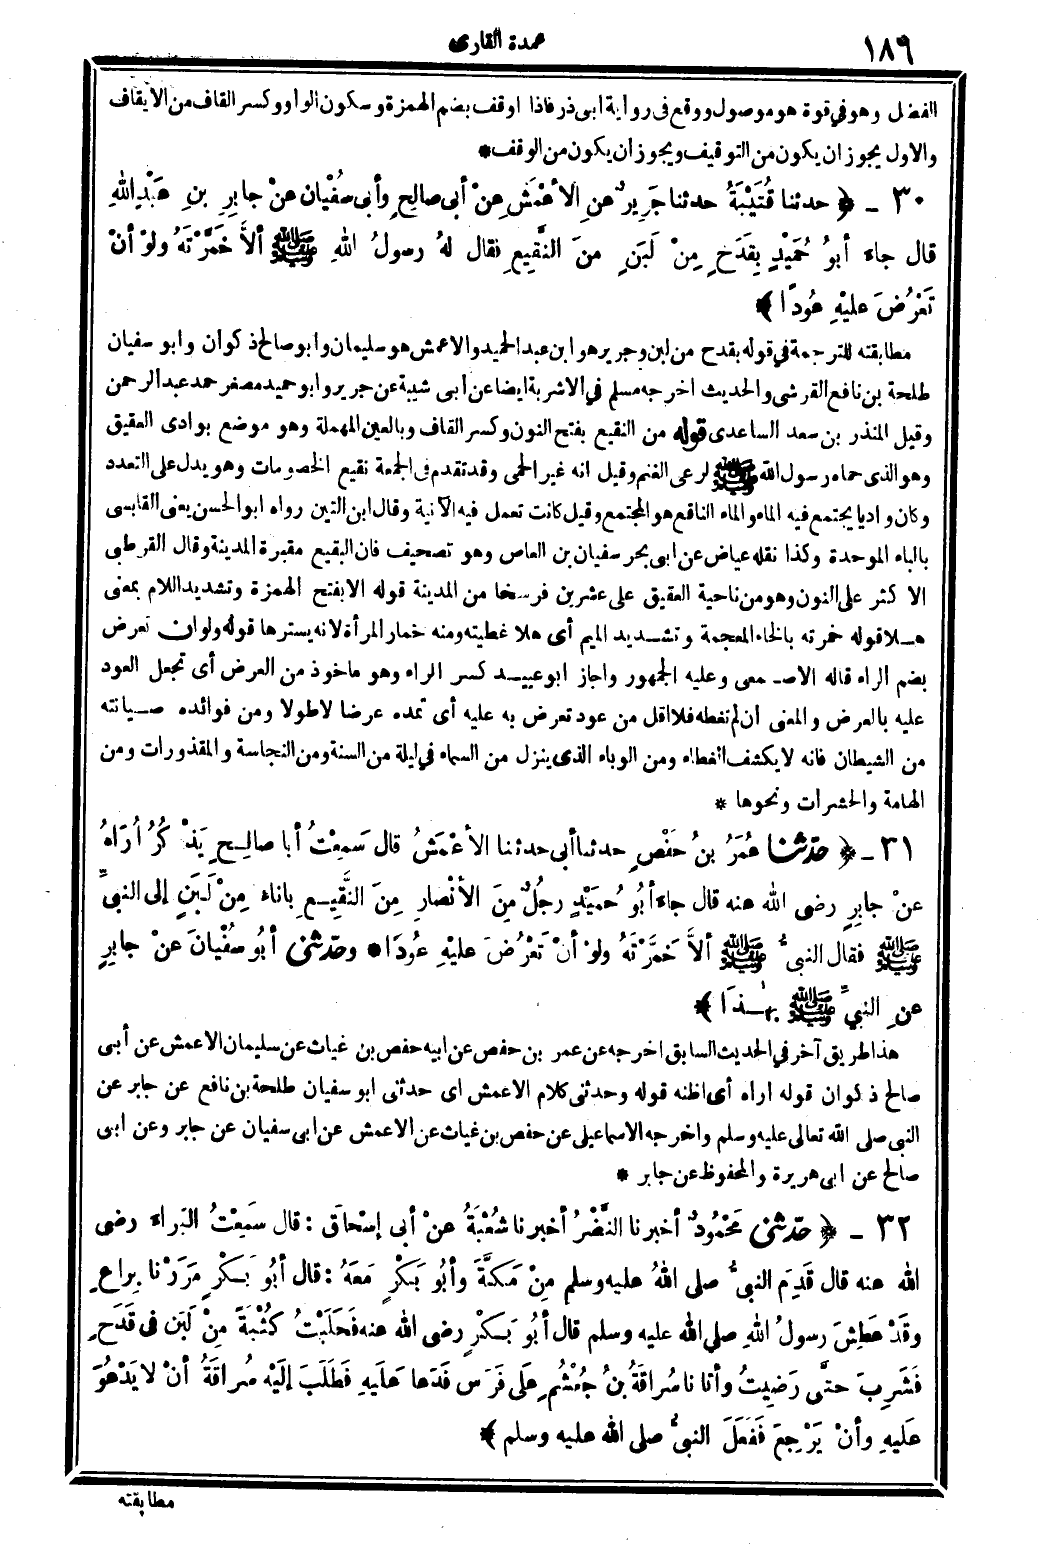 ١٨٩
عمدة القارى
الفضل وهو في قوة هو موصول ووقع فى رواية ابى ذر فاذا اوقف بضم الهمزة وسكون الواو وكسر القاف من الايقاف
والاول يجوز ان يكون من التوقيف ويجوز أن يكون من الوقف*
٣٠ ـ ﴿ حدثنا قُتَيْبَةُ حدثنا جَرِيرٌ عنِ الأعْمَشِ عنْ أبى صالحٍ وأبى سُفْيان عنْ جابِرِ بنِ عَبْدِ اللهِ
قال جاءَ أبُو حُمَيْدٍ بِقَدَحٍ مِنْ لَبَنٍ منَ النَّقِيعِ فقال لهُ رسولُ اللهِ ﷺ ألاَّ خَمَّرْتَهُ ولوْ أنْ
تَعْرُضَ عليْهِ عُودًا ﴾
مطابقته للترجمة في قوله بقدح من لبن وجرير هو ابن عبد الحميد والاعمش هو سليمان وابو صالح ذكوان وابو سفيان
طلحة بن نافع القرشى والحديث اخرجه مسلم في الاشربة ايضا عن ابى شيبة عن جرير وابو حميد مصغر حمد عبد الرحمن
وقيل المنذر بن سعد الساعدى قوله من النقيع بفتح النون وكسر القاف وبالعين المهملة وهو موضع بوادى العقيق
وهو الذى حماه رسول الله ﷺ لرعى الغنم وقيل انه غير الحمى وقد تقدم فى الجمعة نقيع الخصومات وهو يدل على التعدد
وكان واديا يجتمع فيه الماء والماء الناقع هو المجتمع وقيل كانت تعمل فيه الآنية وقال ابن التين رواه ابو الحسن يعنى القابسى
بالباء الموحدة وكذا نقله عياض عن ابى بحر سفيان بن العاص وهو تصحيف فان البقيع مقبرة المدينة وقال القرطبى
الاكثر على النون وهو من ناحية العقيق على عشرين فرسخا من المدينة قوله الا بفتح الهمزة وتشديد اللام بمعنى
هلا قوله خمرته بالخاء المعجمة وتشديد الميم أى هلا غطيته ومنه خمار المرأة لانه يسترها قوله ولو ان تعرض
بضم الراء قاله الاصمعى وعليه الجمهور واجاز ابو عبيد كسر الراء وهو ماخوذ من العرض أى تجعل العود
عليه بالعرض والمعنى أن لم تغطه فلا اقل من عود تعرض به عليه أى تمده عرضا لا طولا ومن فوائده صيانته
من الشيطان فانه لا يكشف الغطاء ومن الوباء الذى ينزل من السماء في ليلة من السنة ومن النجاسة والمقذورات ومن
الهامة والحشرات ونحوها *
٣١ ـ ﴿ حدّثنا عُمَرُ بنُ حَفْصٍ حدثنا أبى حدثنا الأعْمَشُ قال سَمِعْتُ أبا صالِحٍ يَذْكُرُ أُرَاهُ
عنْ جابِرٍ رضى الله عنه قال جاءَ أبُو حُمَيْدٍ رجُلٌ مِنَ الأنْصارِ مِنَ النَّقِيعِ باناءٍ مِنْ لَبَنٍ إلى النبىِّ
ﷺ فقال النبىُّ ﷺ ألاَّ خَمَّرْتَهُ ولوْ أنْ تَعْرُضَ عليْهِ عُودًا * وحدّثنى أبُو سُفْيانَ عنْ جابِرٍ
عنِ النبيِّ ﷺ بِهٰذَا ﴾
هذا طريق آخر في الحديث السابق اخرجه عن عمر بن حفص عن ابيه حفص بن غياث عن سليمان الاعمش عن أبى
صالح ذكوان قوله اراه أى اظنه قوله وحدثنى كلام الاعمش اى حدثنى ابو سفيان طلحة بن نافع عن جابر عن
النبى صلى الله تعالى عليه وسلم واخرجه الاسماعيلى عن حفص بن غياث عن الاعمش عن ابى سفيان عن جابر وعن ابى
صالح عن ابى هريرة والمحفوظ عن جابر *
٣٢ ـ ﴿ حدّثنى مَحْمُودٌ أخبرنا النَّضْرُ أخبرنا شُعْبَةُ عنْ أبى إسْحاقَ : قال سَمِعْتُ البَراءَ رضى
الله عنه قال قَدِمَ النبىُّ صلى اللهُ عليه وسلم مِنْ مَكَّةَ وأبُو بَكْرٍ مَعَهُ : قال أبُو بَكْرٍ مَرَرْنا بِراعٍ
وقَدْ عَطِشَ رسولُ اللهِ صلي الله عليه وسلم قال أبُو بَكْرٍ رضى الله عنه فَحَلَبْتُ كُثْبَةً مِنْ لَبَنٍ فى قَدَحٍ
فَشَرِبَ حتَّى رَضِيتُ وأتانا سُراقَةُ بنُ جُعْشُمٍ عَلَى فَرَسٍ فَدَعا عَليهِ فَطَلَبَ إلَيْهِ سُراقَةُ أنْ لا يَدْعُوَ
عَليهِ وأنْ يَرْجِعَ فَفَعَلَ النبىُّ صلى الله عليه وسلم ﴾
مطابقته